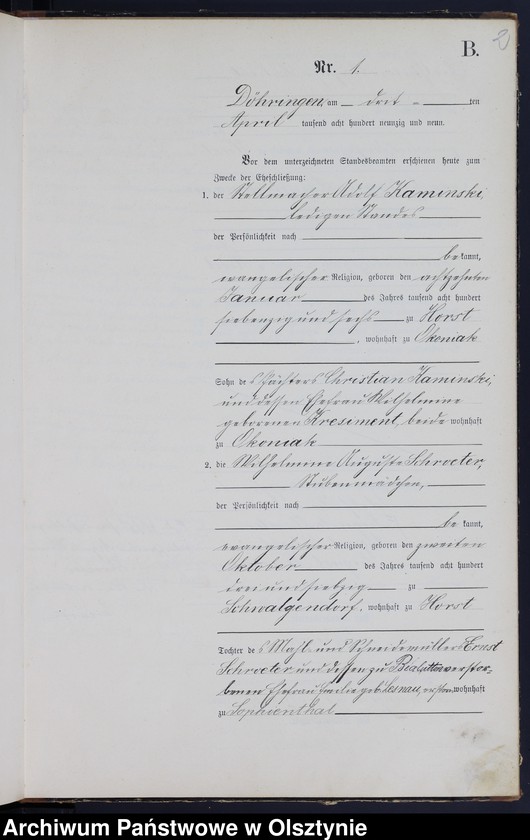 B.
2
Nr. 1.
Döhringen, am dort ten
April tausend acht hundert neunzig und neun.
Vor dem unterzeichneten Standesbeamten erschienen heute zum
Zwecke der Eheschließung:
1. der Stellmacher Adolf Kaminski,
ledigen Standes
der Persönlichkeit nach
be kannt,
evangelischer Religion, geboren den achtzehnten
Januar des Jahres tausend acht hundert
siebenzig und sechs zu Horst
, wohnhaft zu Okoniak
Sohn des Pächters Christian Kaminski,
und dessen Ehefrau Wilhelmine
geborenen Kresiment, beide wohnhaft
zu Okoniak
2. die Wilhelmine Auguste Schroeter,
Stubenmädchen,
der Persönlichkeit nach
be kannt,
evangelischer Religion, geboren den zweiten
Oktober des Jahres tausend acht hundert
und siebzig zu
Schwalgendorf, wohnhaft zu Horst
Tochter des Mahl- und Schneidemüllers Ernst
Schroeter und dessen zu verstor-
benen Ehefrau Emilie geb. Lesnau, ersterer wohnhaft
zu Sophienthal
Archiwum Państwowe w Olsztynie